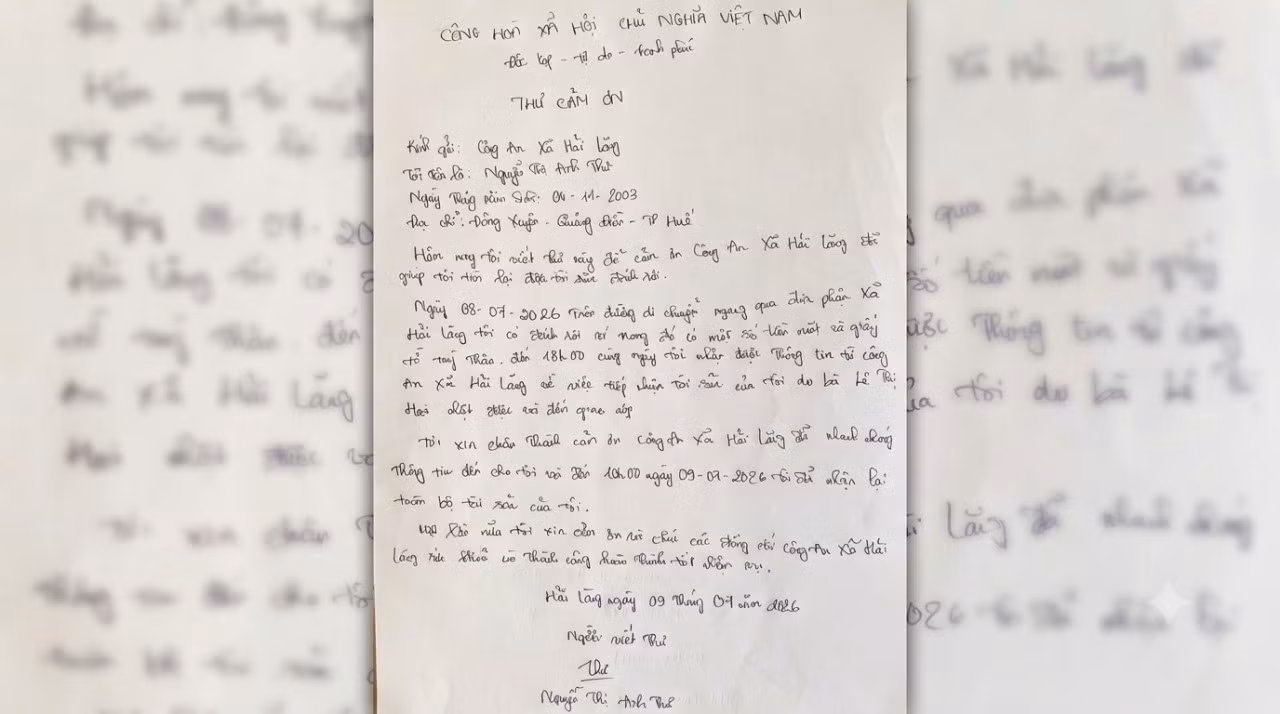 CÔNG HOÀ XÃ HỘI CHỦ NGHĨA VIỆT NAM
Độc lập - tự do - hạnh phúc
THƯ CẢM ƠN
Kính gửi: Công An Xã Hải Lăng
Tôi tên là: Nguyễn Thị Anh Thư
Ngày tháng năm sinh: 04-11-2003
Địa chỉ: Đông Xuyên - Quảng Điền - TP Huế
Hôm nay tôi viết thư này để cảm ơn Công An Xã Hải Lăng đã
giúp tôi tìm lại được tài sản đánh rơi.
Ngày 08-07-2026 trên đường di chuyển ngang qua địa phận Xã
Hải Lăng tôi có đánh rơi ví trong đó có một số tiền mặt và giấy
tờ tuỳ thân. đến 18h00 cùng ngày tôi nhận được thông tin từ công
An xã Hải Lăng về việc tiếp nhận tài sản của tôi do bà Lê Thị
Hoài nhặt được và đến giao nộp
Tôi xin chân thành cảm ơn công An Xã Hải Lăng đã nhanh chóng
thông tin đến cho tôi và đến 10h00 ngày 09-07-2026 tôi đã nhận lại
toàn bộ tài sản của tôi.
Một lần nữa tôi xin cảm ơn và chúc các đồng chí Công An Xã Hải
Lăng sức khoẻ và thành công hoàn thành tốt nhiệm vụ.
Hải Lăng ngày 09 tháng 07 năm 2026
Người viết thư
Thư
Nguyễn Thị Anh Thư